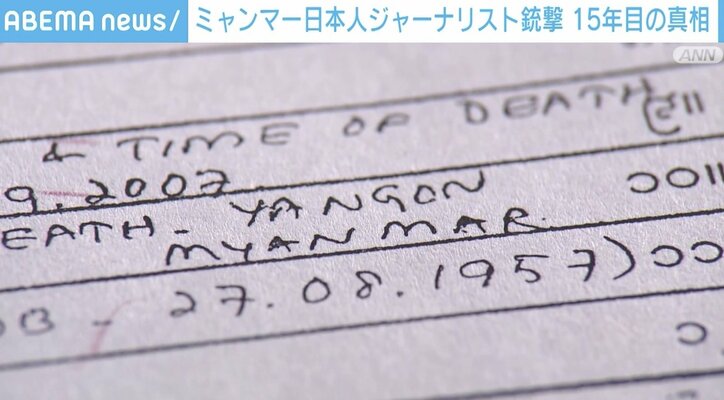 ABEMA news/
ミャンマー日本人ジャーナリスト銃撃 15年目の真相
ANN
& TIME OF DEATH
9.2007
EATH - YANGON
MYANMAR.
OB - 27.08.1957)